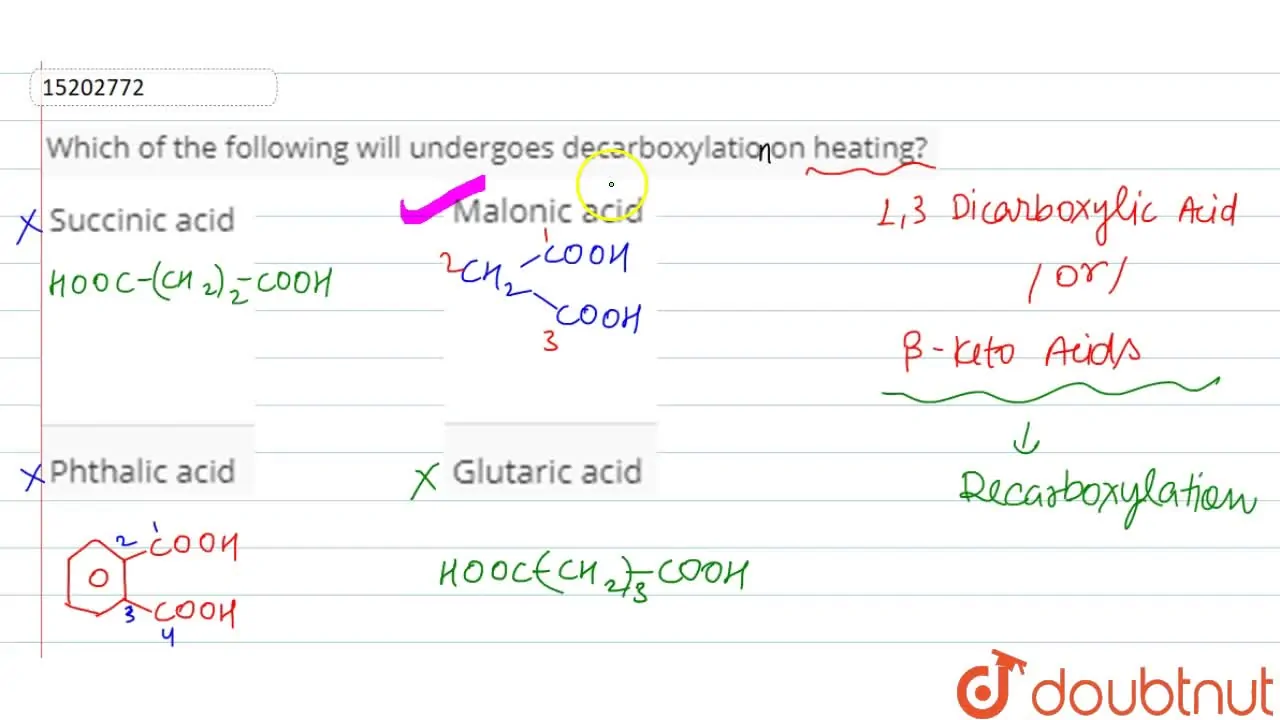 15202772
Which of the following will undergoes decarboxylation on heating?
X Succinic acid
HOOC-(CH2)2-COOH
Malonic acid
1
COOH
2 CH2
COOH
3
1,3 Dicarboxylic Acid
/ Or /
β-Keto Acids
↓
Decarboxylation
X Phthalic acid
1
2 COOH
3 COOH
4
X Glutaric acid
HOOC-(CH2)3-COOH
doubtnut